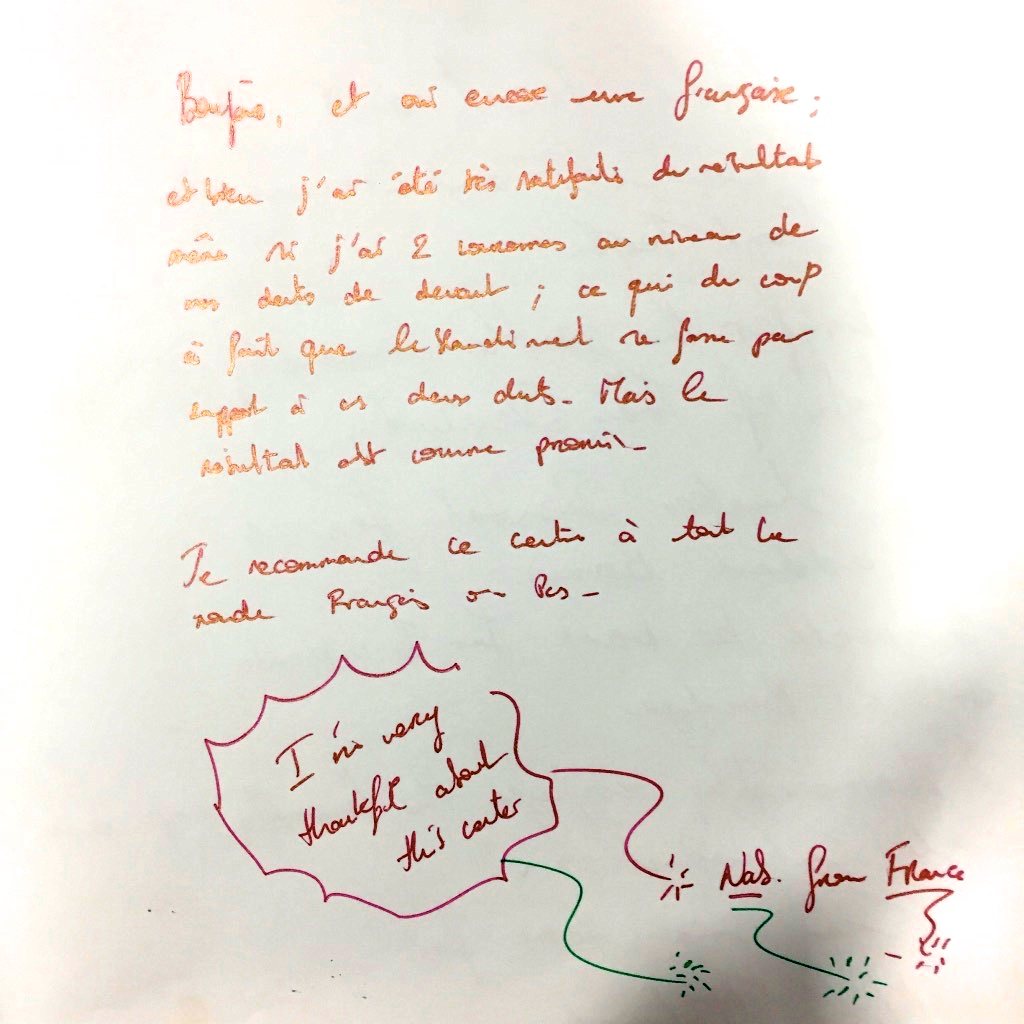 Bonjour, et oui encore une française ;
et bien j'ai été très satisfaite du résultat
même si j'ai 2 couronnes au niveau de
mes dents de devant ; ce qui du coup
à fait que le blanchiment se fasse par
rapport à ces deux dents. Mais le
résultat est comme promis.
Je recommande ce centre à tout le
monde Français ou Pas.
I'm very
thankful about
this center
Nas. from France